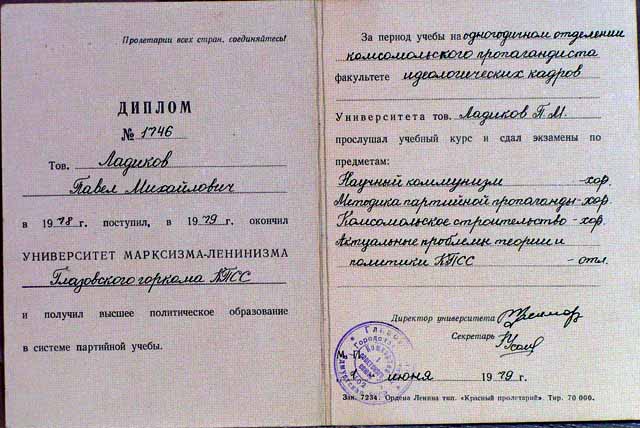 Пролетарии всех стран, соединяйтесь!
ДИПЛОМ
№ 1746
Тов. Ладиков
Павел Михайлович
в 1978 г. поступил, в 1979 г. окончил
УНИВЕРСИТЕТ МАРКСИЗМА-ЛЕНИНИЗМА
Глазовского горкома КПСС
и получил высшее политическое образование
в системе партийной учебы.
За период учебы на одногодичном отделении
комсомольского пропагандиста
факультете идеологических кадров
Университета тов. Ладиков П.М.
прослушал учебный курс и сдал экзамены по
предметам:
Научный коммунизм - хор.
Методика партийной пропаганды - хор.
Комсомольское строительство - хор.
Актуальные проблемы теории и
политики КПСС - отл.
Директор университета
Секретарь
М. П.
июня 1979 г.
Зак. 7234. Ордена Ленина тип. «Красный пролетарий». Тир. 70 000.